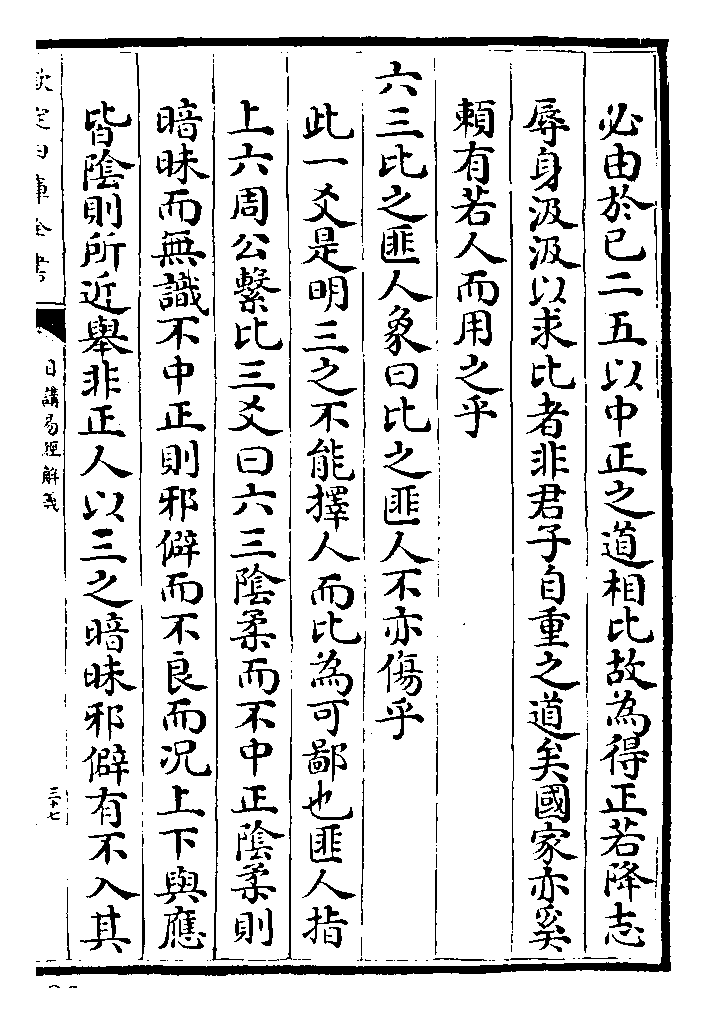 必由於已二五以中正之道相比故為得正若降志
辱身汲汲以求比者非君子自重之道矣國家亦奚
頼有若人而用之乎
六三比之匪人象曰比之匪人不亦傷乎
此一爻是明三之不能擇人而比為可鄙也匪人指
上六周公繫比三爻曰六三陰柔而不中正陰柔則
暗昧而無識不中正則邪僻而不良而况上下與應
皆陰則所近舉非正人以三之暗昧邪僻有不入其
欽定四庫全書
日講易經解義
三十七